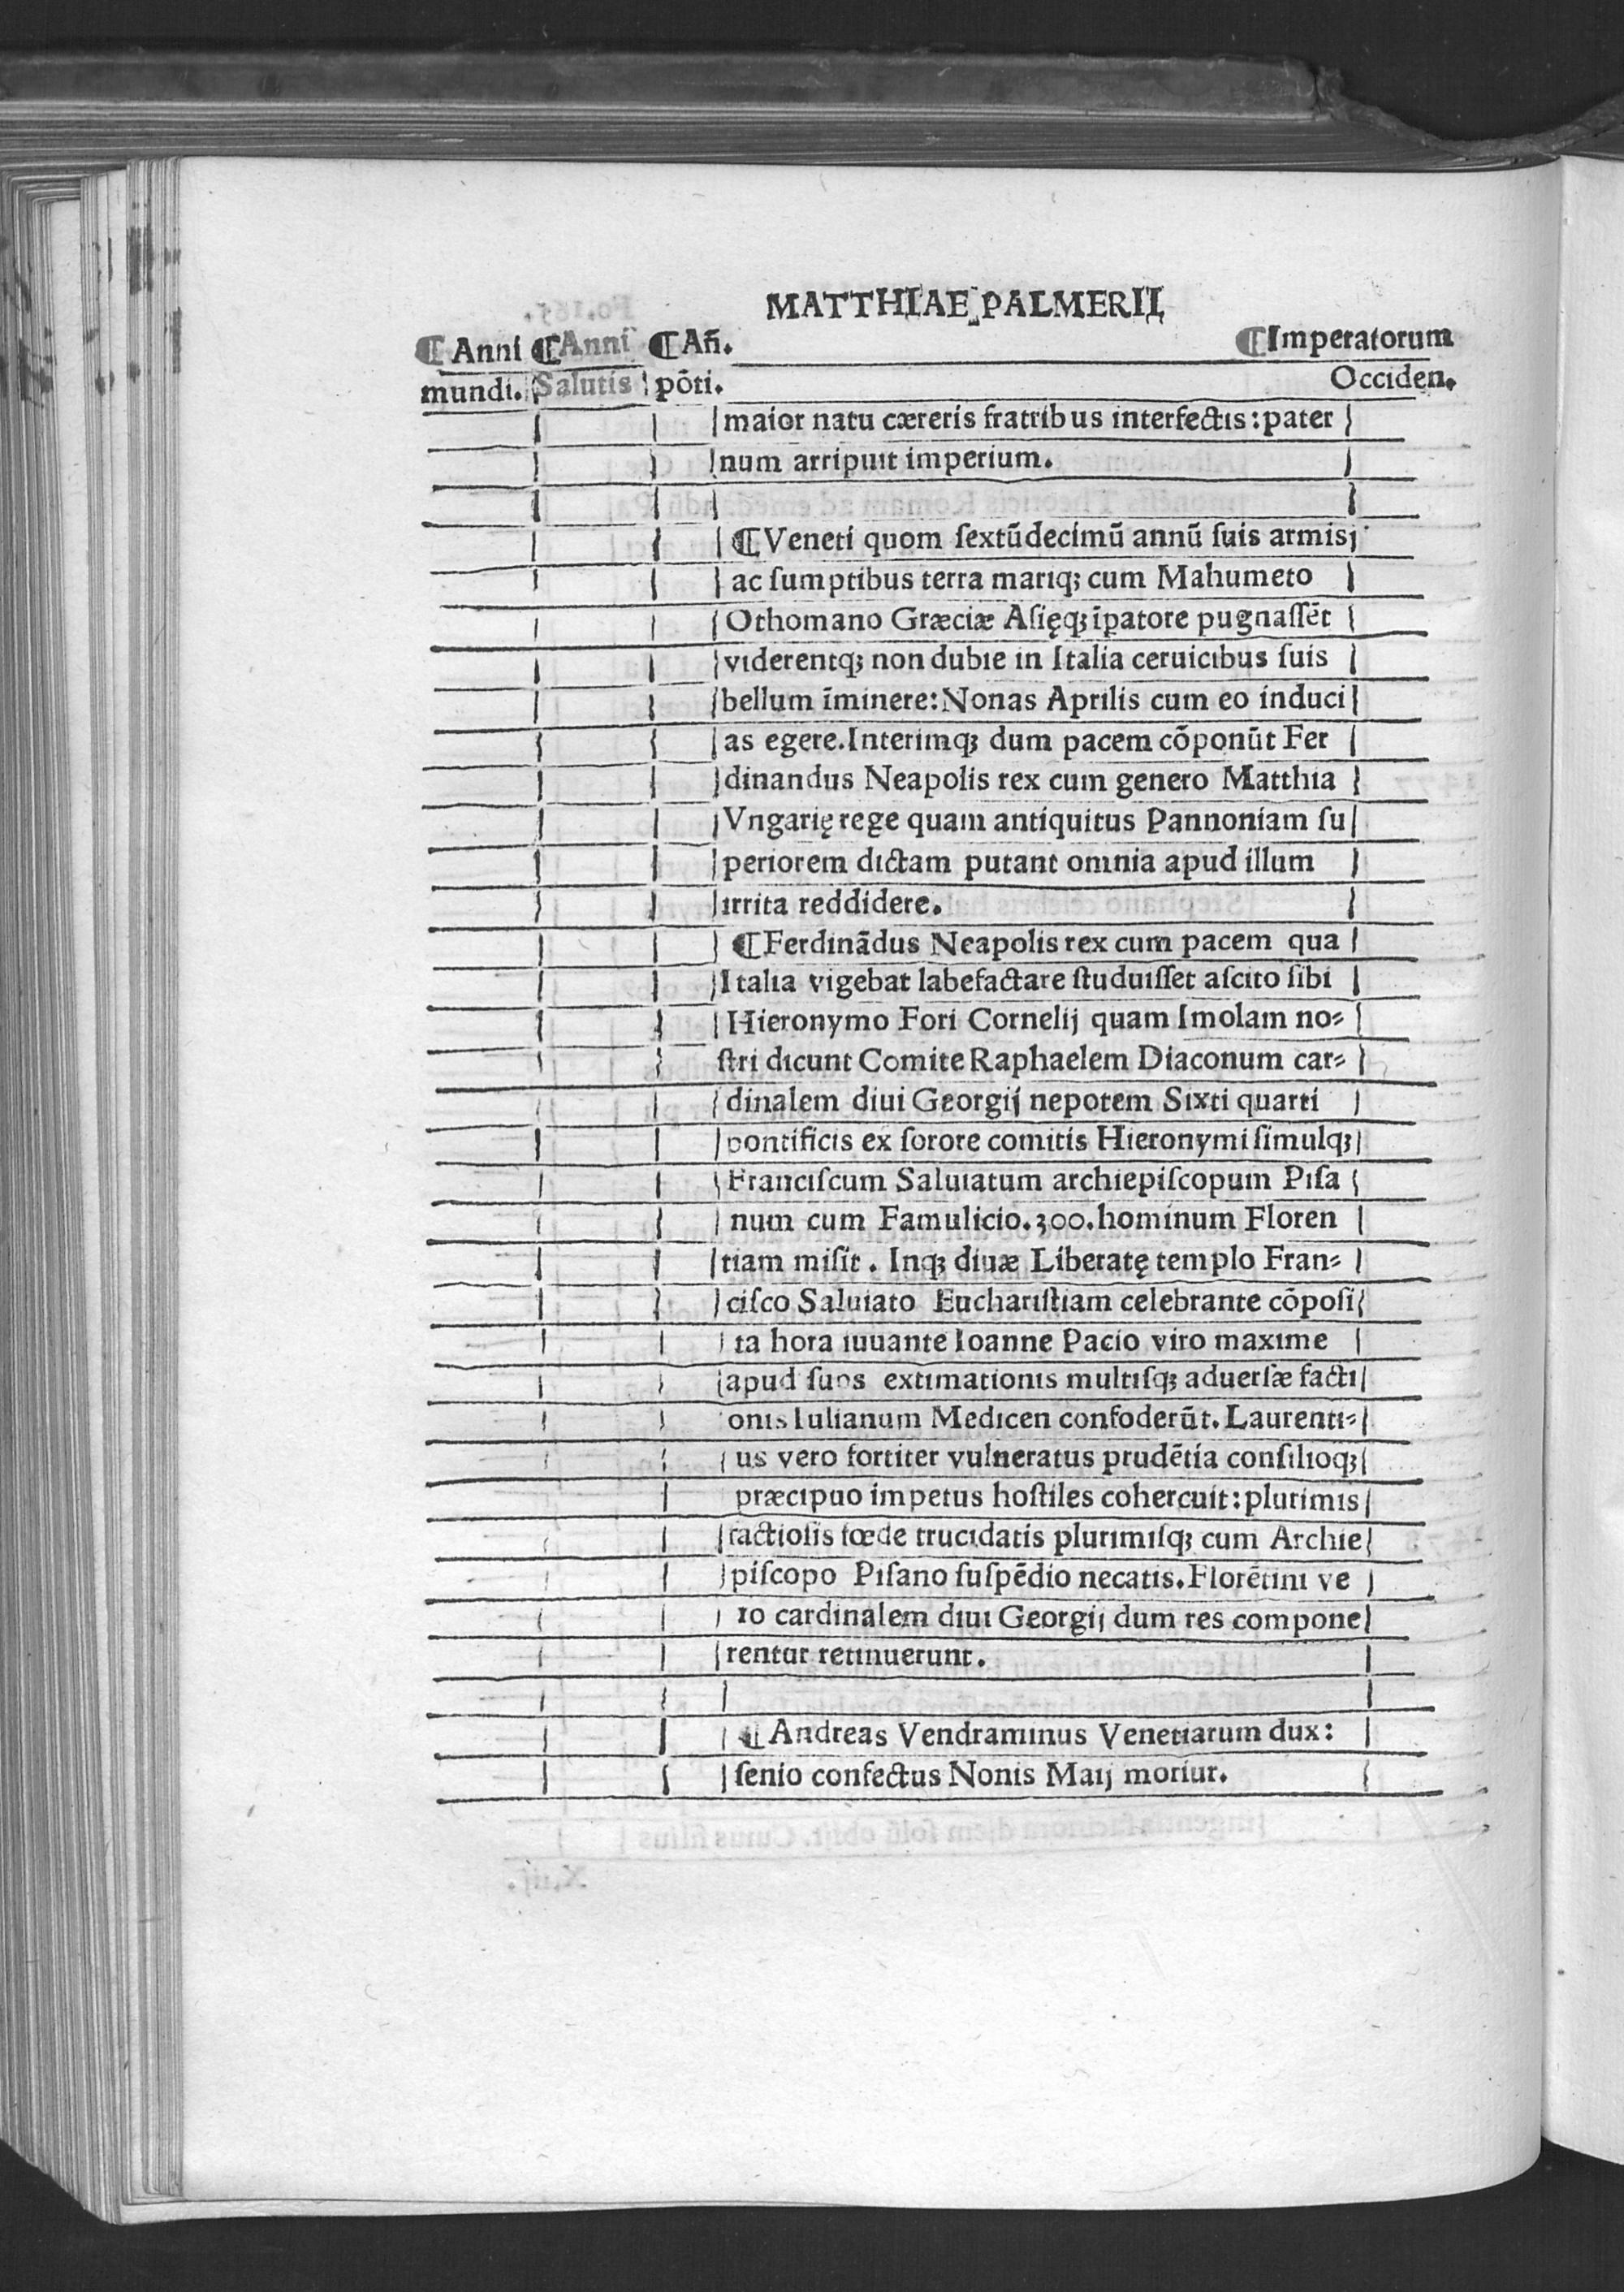 MATTHIAE PALMERII
¶ Anni ¶ Anni ¶ Añ. ¶ Imperatorum
mundi. Salutis põti. Occiden.
maior natu cæreris fratribus interfectis: pater
num arripuit imperium.
¶ Veneti quom ſextũdecimũ annũ ſuis armis
ac ſumptibus terra mariq; cum Mahumeto
Othomano Græciæ Aſięq; ĩpatore pugnaſſēt
viderentq; non dubie in Italia ceruicibus ſuis
bellum ĩminere: Nonas Aprilis cum eo induci
as egere. Interimq; dum pacem cõponũt Fer
dinandus Neapolis rex cum genero Matthia
Vngarię rege quam antiquitus Pannoniam ſu
periorem dictam putant omnia apud illum
irrita reddidere.
¶ Ferdinãdus Neapolis rex cum pacem qua
Italia vigebat labefactare ſtuduiſſet aſcito ſibi
Hieronymo Fori Cornelij quam Imolam no⸗
ſtri dicunt Comite Raphaelem Diaconum car⸗
dinalem diui Georgij nepotem Sixti quarti
pontificis ex ſorore comitis Hieronymi ſimulq;
Franciſcum Saluiatum archiepiſcopum Piſa
num cum Famulicio. 300. hominum Floren
tiam miſit. Inq; diuæ Liberatę templo Fran⸗
ciſco Saluiato Euchariſtiam celebrante cõpoſi
ta hora iuuante Ioanne Pacio viro maxime
apud ſuos extimationis multiſq; aduerſæ facti
onis Iulianum Medicen confoderũt. Laurenti⸗
us vero fortiter vulneratus prudētia conſilioq;
præcipuo impetus hoſtiles cohercuit: plurimis
factioſis fœde trucidatis plurimiſq; cum Archie
piſcopo Piſano ſuſpēdio necatis. Florētini ve
ro cardinalem diui Georgij dum res compone
rentur retinuerunt.
¶ Andreas Vendraminus Venetiarum dux:
ſenio confectus Nonis Maij moriur.